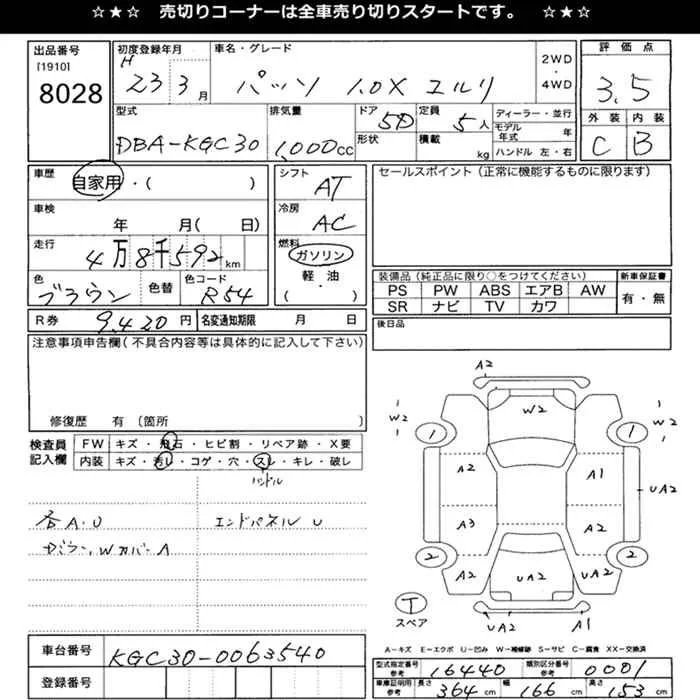 ☆★☆ 売切りコーナーは全車売り切りスタートです。 ☆★☆
出品番号 [1910] 8028
初度登録年月 H 23 3月
車名・グレード パッソ 1.0X ユルリ
2WD・4WD
評価点 3.5
外装 C 内装 B
型式 DBA-KGC30
排気量 1,000cc
ドア 5D 形状
定員 5人 積載 kg
ディーラー・並行
モデル年式 年
ハンドル 左・右
車歴 自家用・( )
シフト AT
セールスポイント(正常に機能するものに限ります)
車検 年 月( 日)
冷房 AC
走行 4万8千592km
燃料 ガソリン 軽・油 ( )
色 ブラウン 色替 色コード R54
装備品(純正品に限り○をつけてください) 新車保証書
PS PW ABS エアB AW 有・無
SR ナビ TV カワ
R券 9,420円 名変通知期限 月 日
後日品
注意事項申告欄(不具合内容等は具体的に記入して下さい)
修復歴 有(箇所 )
検査員記入欄
FW キズ・飛石・ヒビ割・リペア跡・X要
内装 キズ・汚レ・コゲ・穴・スレ・キレ・破レ
ハンドル
各A.U エンドパネル U
ドミラーWカバーA
A2
W2 W2 W2
1 1
A2 A1
UA2
A3 A2
2 2
A2 UA2 UA2
T スペア
UA2 A1
A−キズ E−エクボ U−凹み W−補修跡 S−サビ C−腐食 XX−交換済
車台番号 KGC30-0063540
登録番号
型式指定番号 参考 16440 類別区分番号 参考 0001
車庫証明用 参考 長さ 364cm 幅 166cm 高さ 153cm